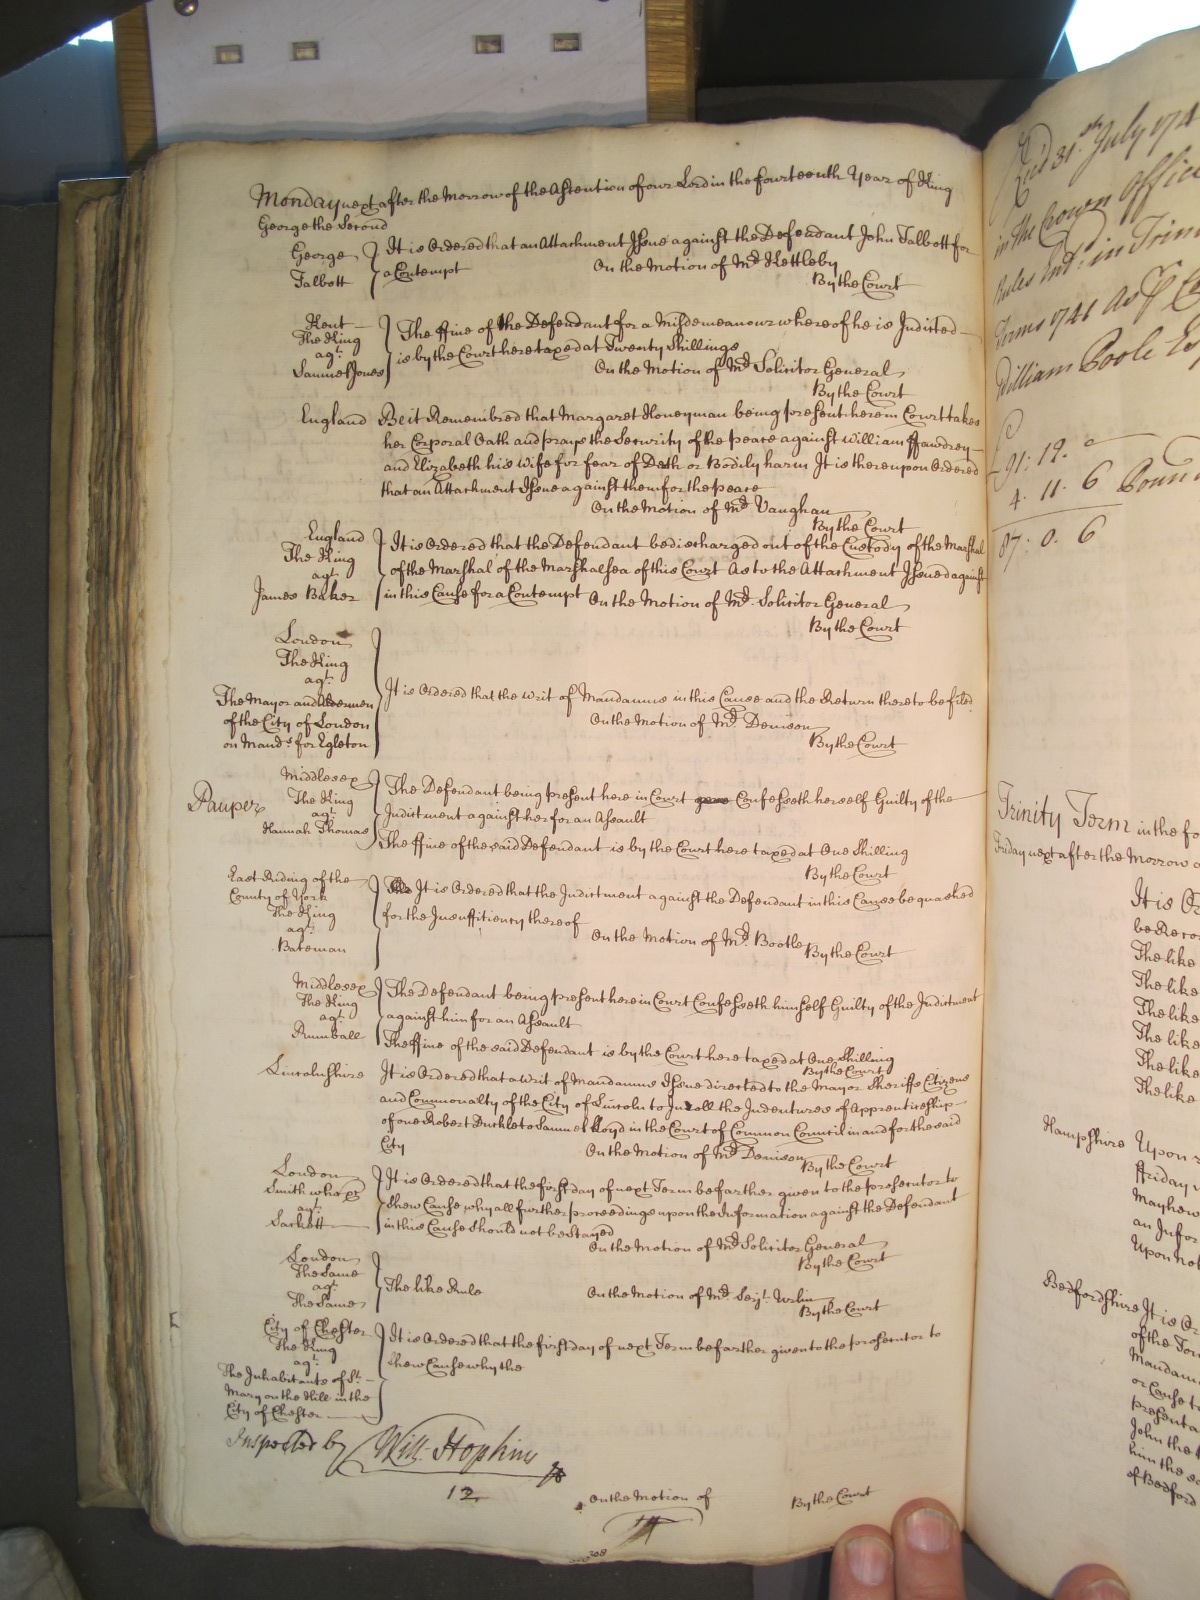 Monday next after the Morrow of the Ascention of our Lord in the fourteenth Year of King
George the Second
George
Talbott
It is Ordered that an Attachment Issue against the Defendant John Talbott for
a Contempt
On the Motion of Mr. Kettleby
By the Court
Kent
The King
agt.
Samuel Jones
The ffine of the Defendant for a Misdemeanour whereof he is Indicted
is by the Court here taxed at Twenty Shillings
On the Motion of Mr. Solicitor General
By the Court
England
Be it Remembred that Margaret Honeyman being present here in Court takes
her Corporal Oath and prays the Security of the peace against William ffawdrey
and Elizabeth his Wife for fear of Death or Bodily harm It is thereupon Ordered
that an Attachment Issue against them for the peace
On the Motion of Mr. Vaughan
By the Court
England
The King
agt.
James Baker
It is Ordered that the Defendant be discharged out of the Custody of the Marshal
of the Marshal of the Marshalsea of this Court As to the Attachment Issued against
in this Cause for a Contempt
On the Motion of Mr. Solicitor General
By the Court
London
The King
agt.
The Mayor and Aldermen
of the City of London
on Mands for Egleton
It is Ordered that the Writ of Mandamus in this Cause and the Return thereto be filed
On the Motion of Mr. Denison
By the Court
Pauper
Middlesex
The King
agt.
Hannah Thomas
The Defendant being present here in Court Confesseth herself Guilty of the
Indictment against her for an Assault
The ffine of the said Defendant is by the Court here taxed at One Shilling
By the Court
East Riding of the
County of York
The King
agt.
Bateman
It is Ordered that the Indictment against the Defendant in this Cause be quashed
for the Insufficiency thereof
On the Motion of Mr. Bootle
By the Court
Middlesex
The King
agt.
Rumball
The Defendant being present here in Court Confesseth himself Guilty of the Indictment
against him for an Assault
The ffine of the said Defendant is by the Court here taxed at One Shilling
By the Court
Lincolnshire
It is Ordered that a Writ of Mandamus Issue directed to the Mayor Sheriffs Citizens
and Commonalty of the City of Lincoln to Inroll the Indentures of Apprenticeship
of one Robert Buckle to Samuel Lloyd in the Court of Common Council in and for the said
City
On the Motion of Mr. Denison
By the Court
London
Smith who &c
agt.
Sackett
It is Ordered that the first day of next Term be farther given to the prosecutor to
shew Cause why all further proceedings upon the Information against the Defendant
in this Cause should not be Stayed
On the Motion of Mr. Solicitor General
By the Court
London
The Same
agt.
The Same
The like Rule
On the Motion of Mr. Serjt. Urlin
By the Court
City of Chester
The King
agt.
The Inhabitants of St.
Mary on the Hill in the
City of Chester
It is Ordered that the first day of next Term be farther given to the prosecutor to
shew Cause why the
Inspected by Will: Hopkins
12
On the Motion of
By the Court
Recd 31st July 174
in the Crown Office
Rules Ent. in Trin
Terms 1741
William Poole Es
£ 91: 19.
4. 11. 6
87: 0. 6
Trinity Term in the fo
Friday next after the Morrow
It is Or
be Reco
The like
The like
The like
The like
The like
The like
Hampshire
Upon
ffriday
Mayhew
an Infor
Upon not
Bedfordshire
It is Or
of the Tow
Mandam
or Cause to
present a
John the
him the
of Bedford